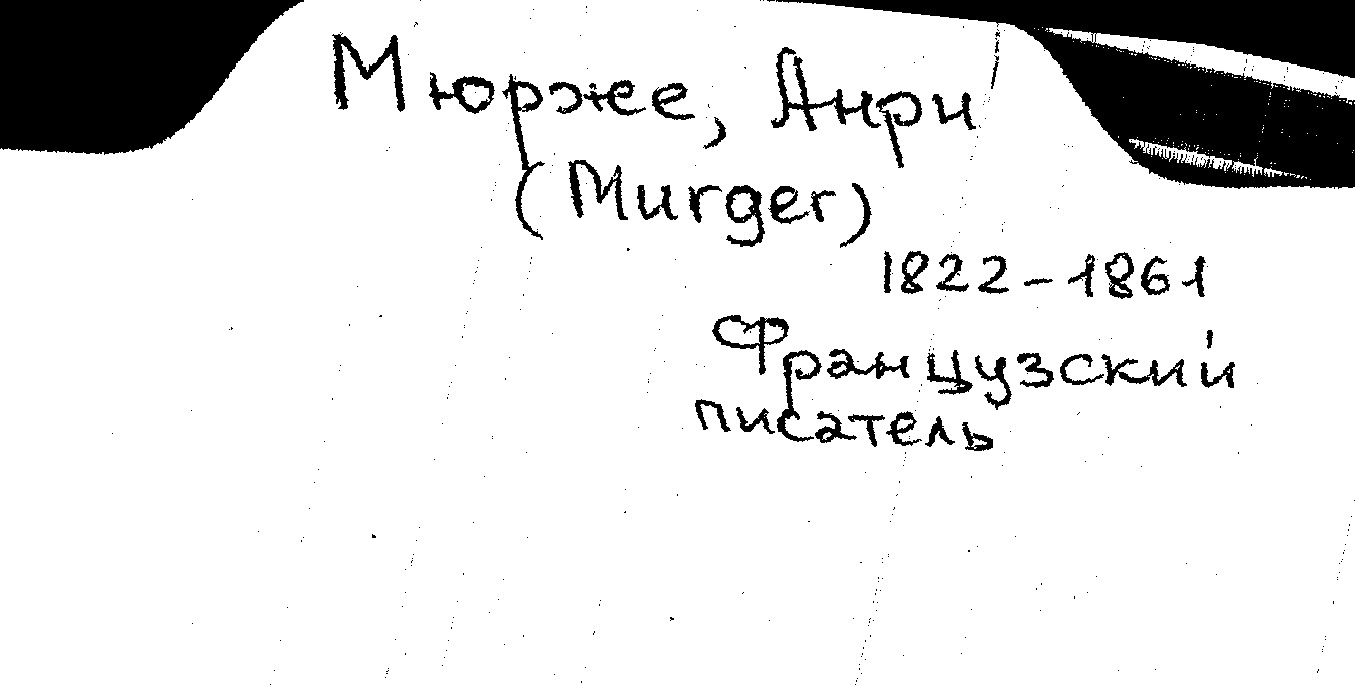 Мюрже, Анри
(Murger)
1822-1861
Французский
писатель